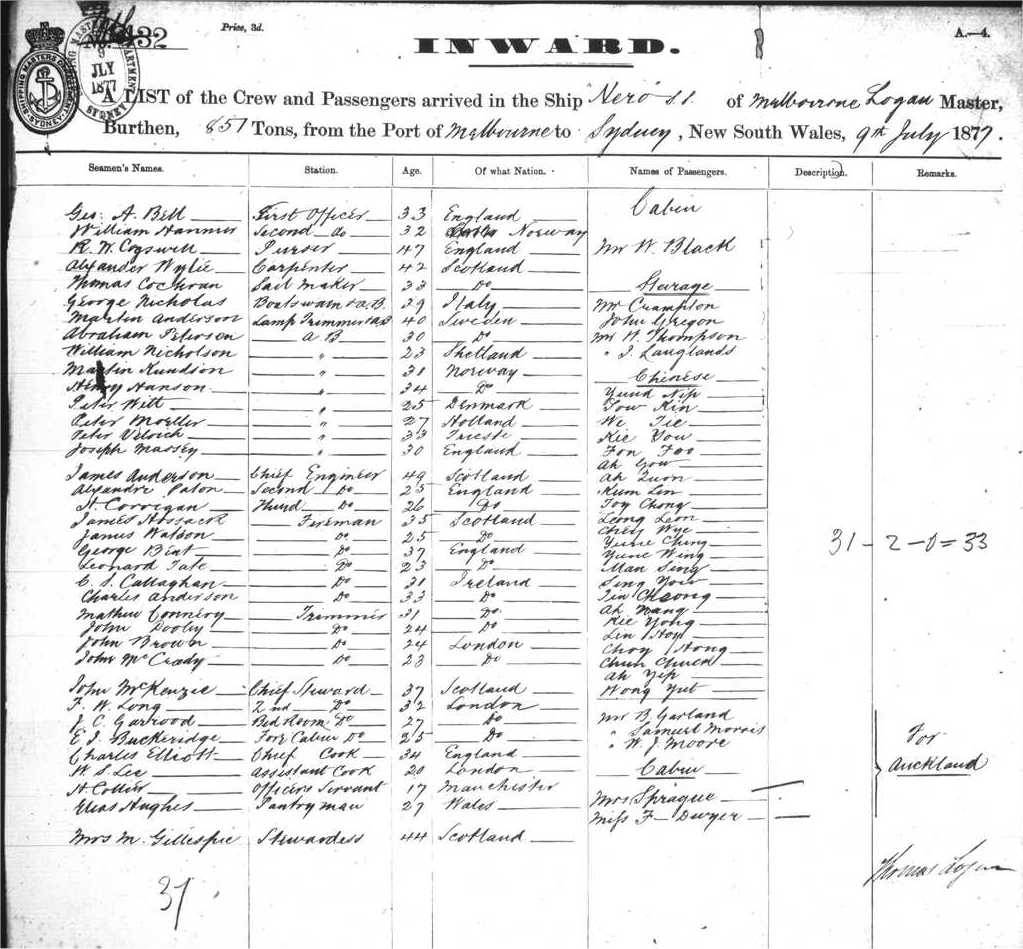 No. 132
Price, 3d.
INWARD.
A.—4.
SHIPPING MASTERS OFFICE SYDNEY
9 JLY 1877
A LIST of the Crew and Passengers arrived in the Ship Nero s.s. of Melbourne Logan Master,
Burthen, 851 Tons, from the Port of Melbourne to Sydney, New South Wales, 9th July 1877.
Seamen's Names. Station. Age. Of what Nation. Names of Passengers. Description. Remarks.
Geo: A. Bell First Officer 33 England Cabin
William Hanmer Second do 32 Norway
R. W. Cogswell Purser 47 England Mr W. Black
Alexander Wylie Carpenter 42 Scotland
Thomas Cochran Sail Maker 33 Do Starage
George Nicholas Boatswain & A.B. 39 Italy Mr Crampton
Martin Anderson Lamp Trimmer & AB 40 Sweden John Gregon
Abraham Peterson A B 30 Do Mr W. Thompson
William Nicholson " 23 Shetland " J. Langlands
Martin Knudson " 31 Norway Chinese
Henry Hanson " 34 Do Yund Nip
Peter Witt " 25 Denmark Tow Kin
Peter Moeller " 27 Holland We Tie
Peter " 33 Trieste Kie You
Joseph Massey " 30 England Fon Foo
Ah Gow
James Anderson Chief Engineer 49 Scotland Ah Quon
Alexandre Paton Second Do 25 England Kum Lin
H. Corrigan Third Do 26 Do Foy Chong
James Hossack Fireman 35 Scotland Leong Leon
James Watson Do 25 Do Chey Wye
George Beat Do 37 England Yune Ching
Leonard Tate Do 23 Do Yune Wing
31 - 2 - 0 = 33
C. S. Callaghan Do 31 Ireland Man Sing
Charles Anderson Do 33 Do Sing Yow
Tin Cheong
Mathew Connery Trimmer 31 Do Ah Nang
John Dooley Do 24 Do Kie Yong
John Brown Do 24 London Lin Hoy
John McCrady Do 23 Do Choy Hong
Chun Chuck
Ah Yip
John McKenzie Chief Steward 37 Scotland Wong Yut
F. W. Long 2nd Do 32 London
J. C. Garrood Bed Room Do 27 Do Mr B. Garland
E. J. Buckeridge Fore Cabin Do 25 Do " Samuel Morris
Charles Elliott Chief Cook 34 England " W. J. Moore
For Auckland
W. S. Lee Assistant Cook 20 London Cabin
H. Collier Officers Servant 17 Manchester
Elias Hughes Pantry man 27 Wales Mrs Sprague
Miss F Dwyer
Mrs M. Gillespie Stewardess 44 Scotland
Thomas Logan
37